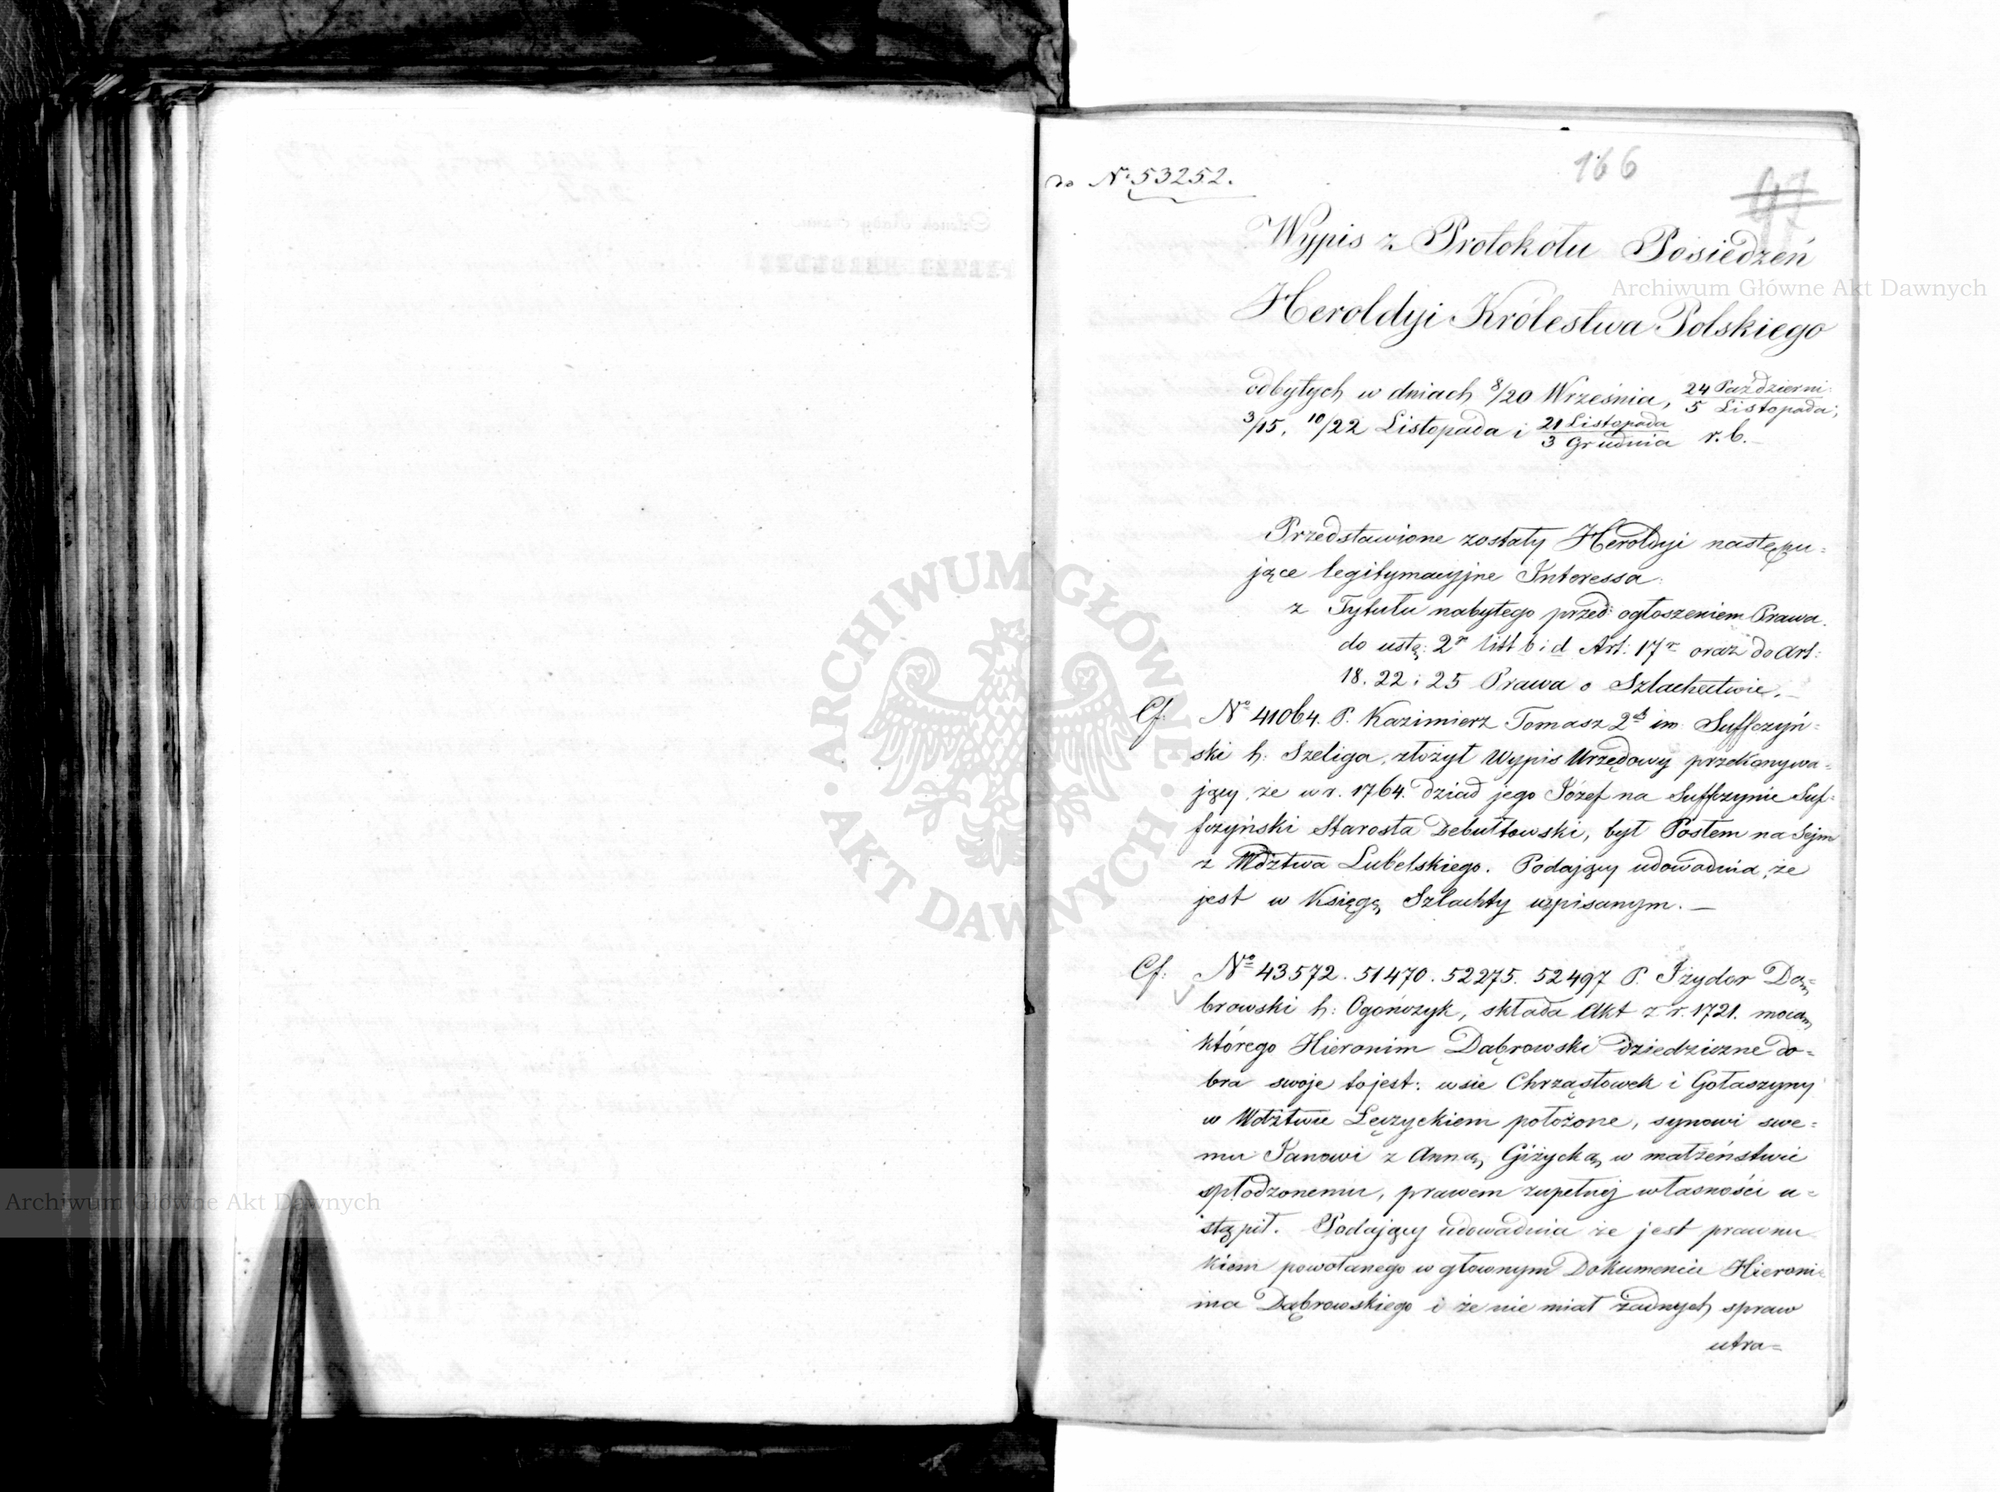 do No 53252.
166
47
Wypis z Protokołu Posiedzeń
Heroldyi Królestwa Polskiego
odbytych w dniach 8/20 Września, 24 Październi: / 5 Listopada;
3/15, 10/22 Listopada i 21 Listopada / 3 Grudnia r. b. –
Przedstawione zostały Heroldyi następu=
jące legitymacyjne Interessa:
z Tytułu nabytego przed ogłoszeniem Prawa.
do ustę: 2o litt b i d Art: 17o oraz do Art:
18. 22 i 25 Prawa o Szlachectwie. –
Cf: No 41064. P. Kazimierz Tomasz 2ch im: Suffczyń=
ski h: Szeliga, złożył Wypis Urzędowy przekonywa=
jący, że w r. 1764. dziad jego Józef na Suffczynie Suf=
fczyński Starosta Debułtowski, był Posłem na Sejm
z Wdztwa Lubelskiego. Podający udowadnia, że
jest w Księgę Szlachty wpisanym. –
Cf: No 43572. 51470. 52275. 52497 P. Izydor Dą=
browski h: Ogończyk, składa Akt z r. 1721. mocą
którego Hieronim Dąbrowski dziedziczne do=
bra swoje tojest: wsie Chrząstowek i Gołaszyny
w Wdztwie Łęczyckiem położone, synowi swe=
mu Janowi z Anną Giżycką w małżeństwie
spłodzonemu, prawem zupełnej własności u=
stąpił. Podający udowadnia że jest prawnu
kiem powołanego w głownym Dokumencie Hieroni=
ma Dąbrowskiego i że nie miał żadnych spraw
utra=
ARCHIWUM GŁÓWNE AKT DAWNYCH
Archiwum Główne Akt Dawnych
Archiwum Główne Akt Dawnych